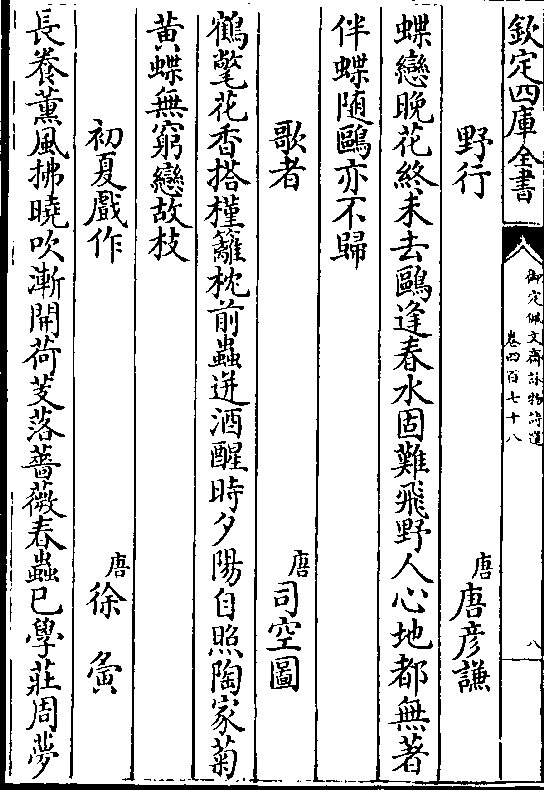 欽定四庫全書
御定佩文齋詠物詩選
卷四百七十八
八
野行
唐唐彥謙
蝶戀晚花終未去鷗逢春水固難飛野人心地都無著
伴蝶隨鷗亦不歸
歌者
唐司空圖
鶴氅花香搭槿籬枕前蟲迸酒醒時夕陽自照陶家菊
黃蝶無窮戀故枝
初夏戲作
唐徐夤
長養薰風拂曉吹漸開荷芰落薔薇春蟲已學莊周夢